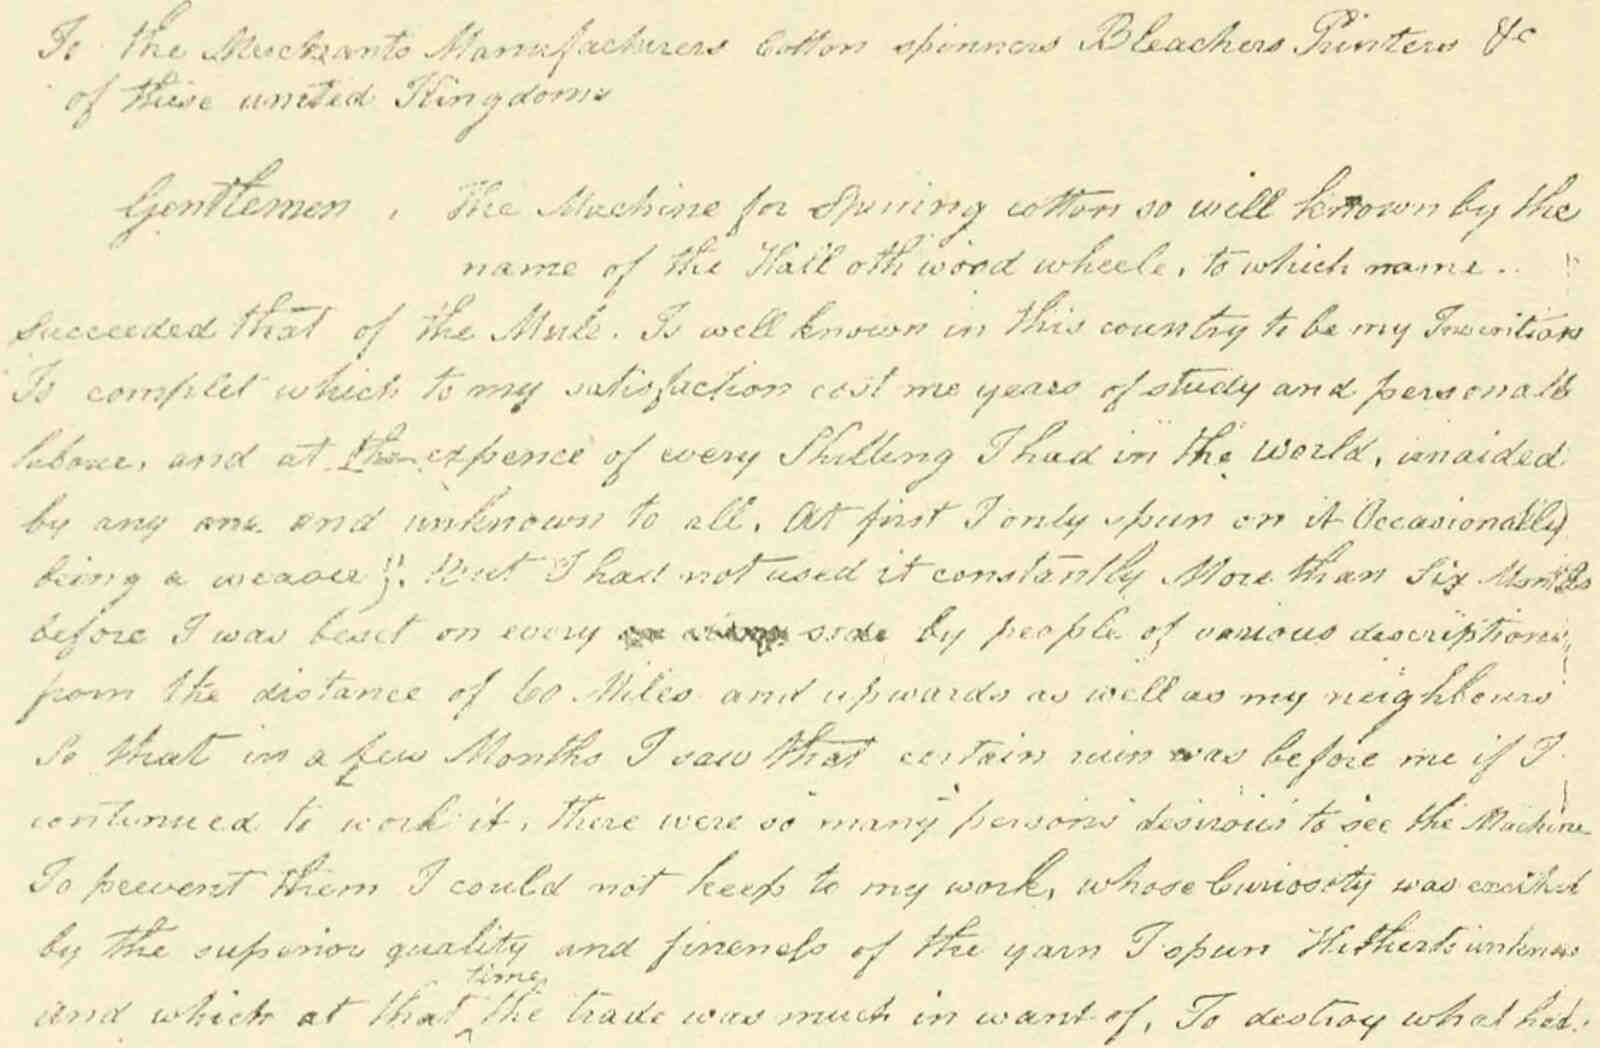 To the Merchants Manufacturers Cotton spinners Bleachers Printers &c
of these united Kingdoms
Gentlemen, The Machine for Spining cotton so well known by the
name of the Hall oth wood wheele, to which name..
succeeded that of the Mule. Is well known in this country to be my Invention
To complet which to my satisfaction cost me years of study and personall
laboure, and at the expence of every Shilling I had in the world, unaided
by any one and unknown to all. At first I only spun on it Occasionally
being a weaver). But I had not used it constantly More than Six Months
before I was beset on every side by people of various descriptions
from the distance of 60 Miles and upwards as well as my neighbours
So that in a few Months I saw that certain ruin was before me if I
continued to work it, there were so many persons desirous to see the Machine
To prevent them I could not keep to my work, whose Curiosity was excited
by the superior quality and fineness of the yarn I spun Hitherto unknown
and which at that time the trade was much in want of, To destroy what had